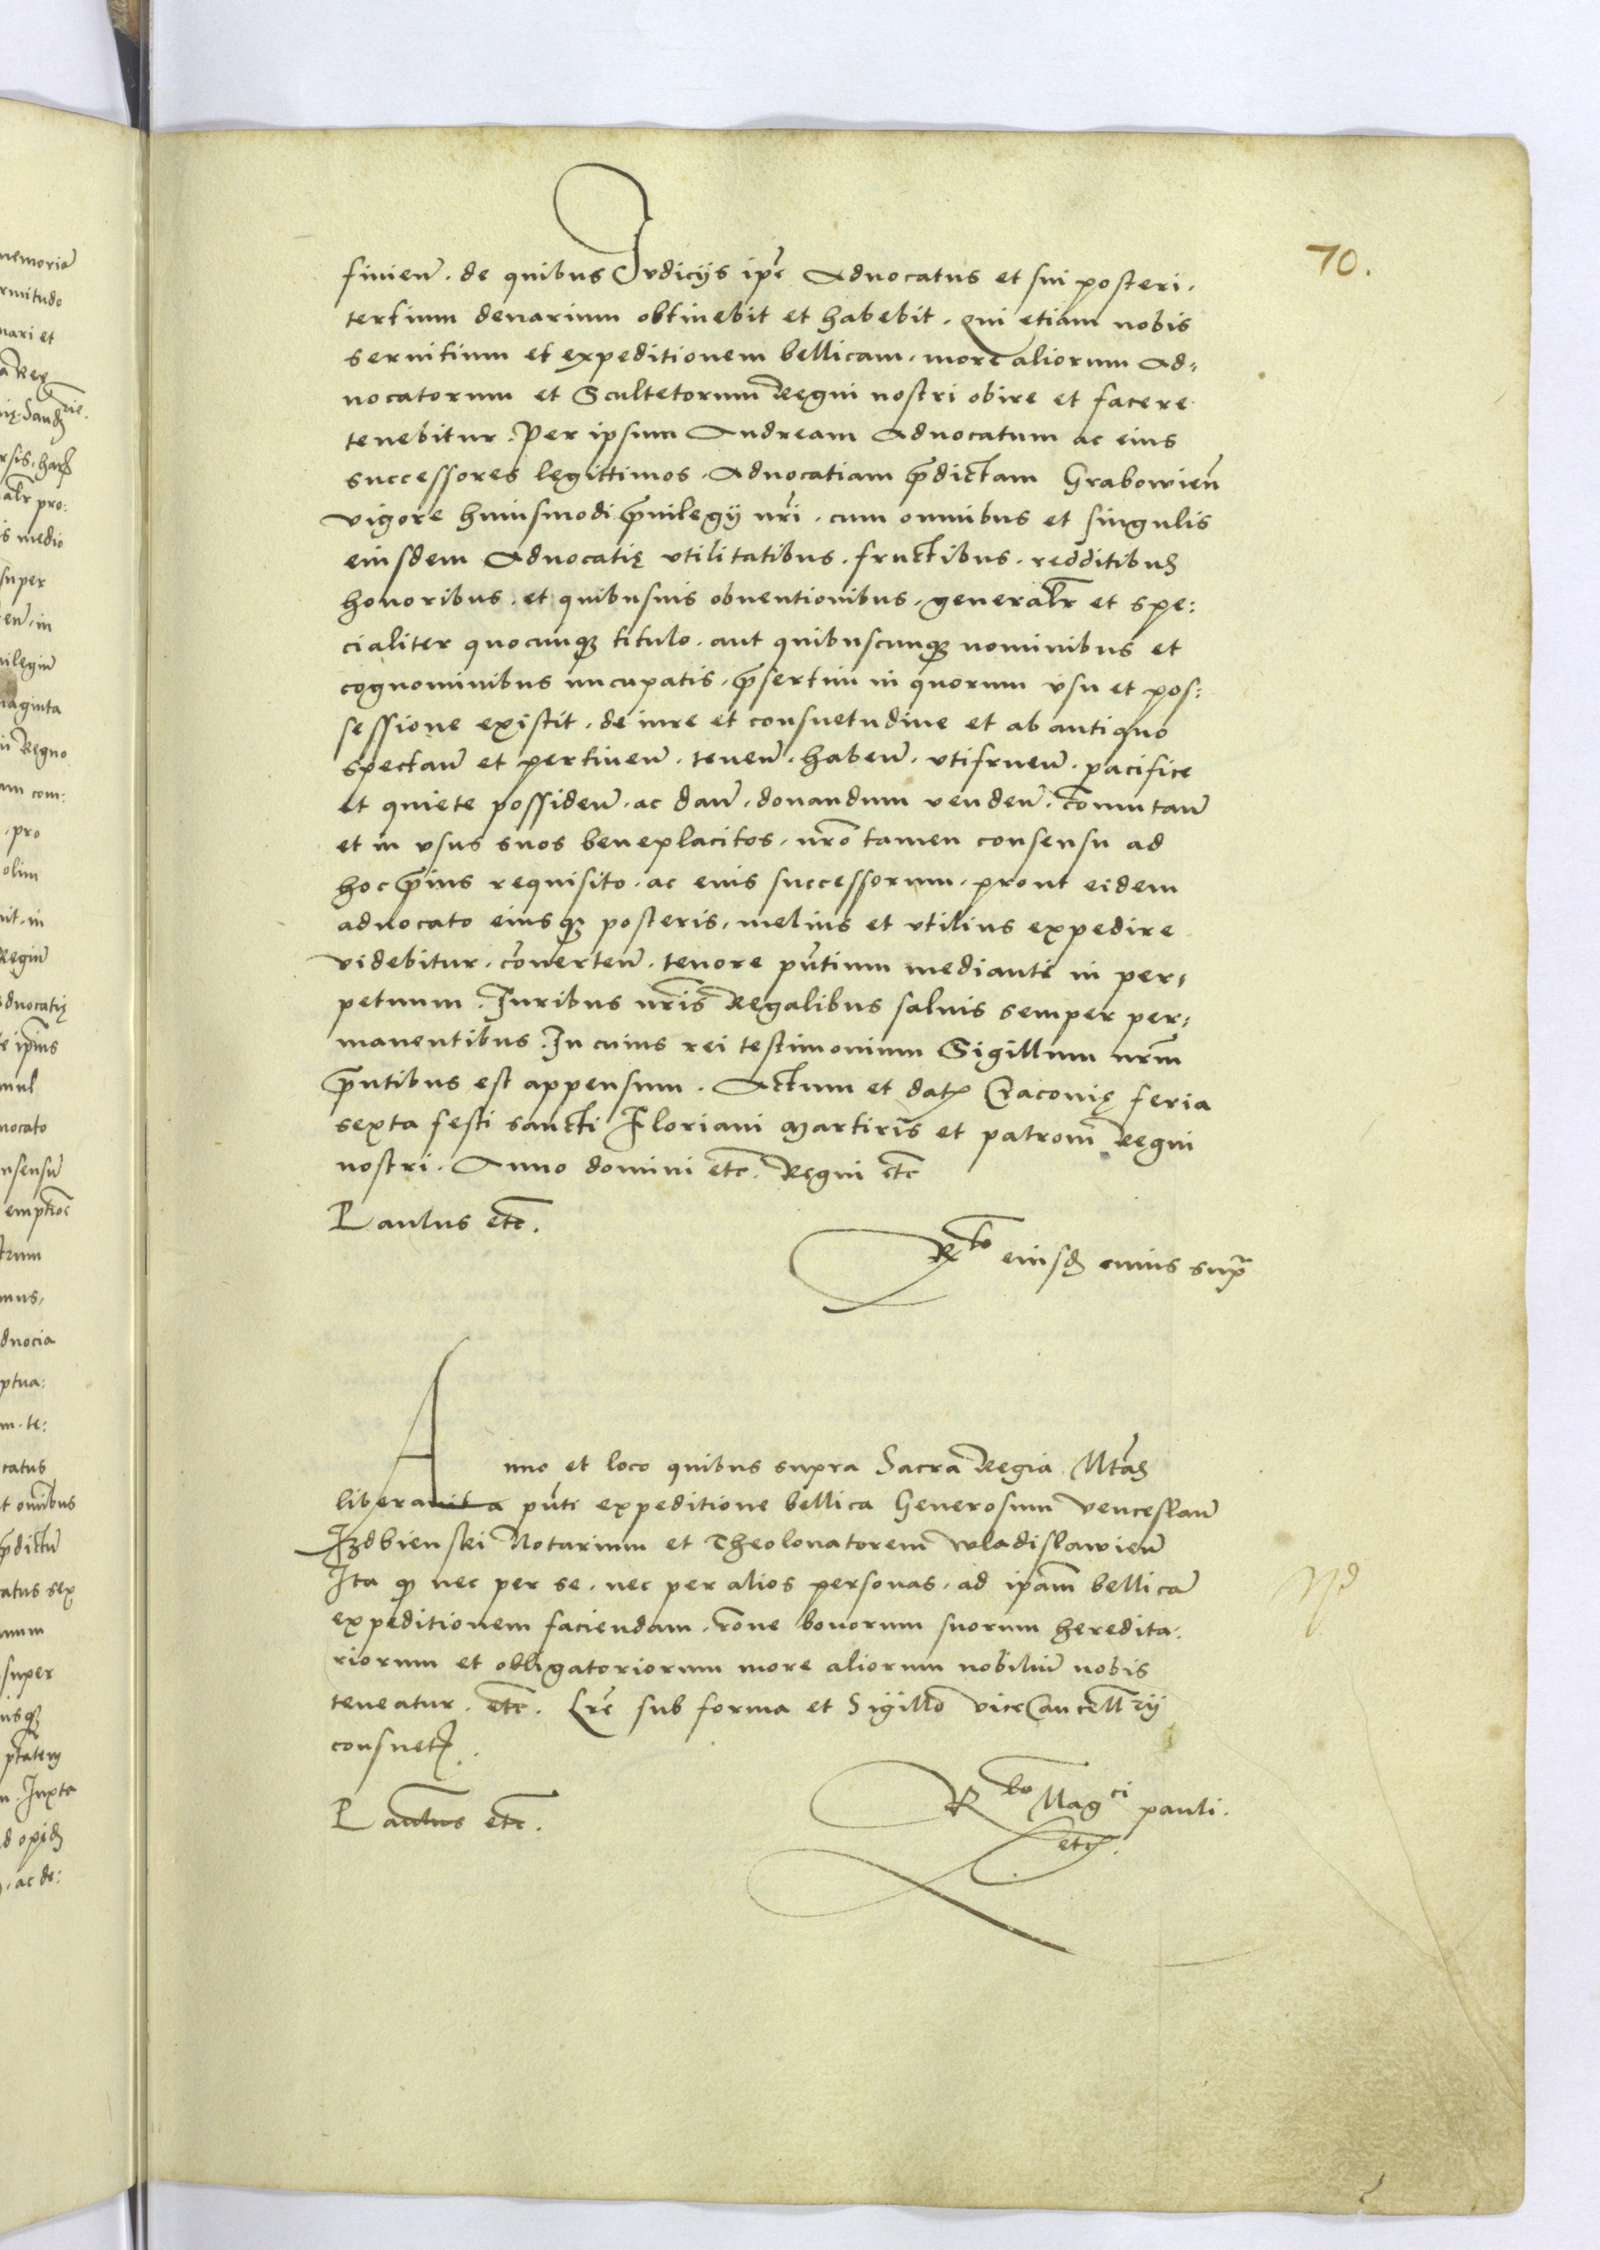 70.
finien̄. de quibus Iudicijs ip̄e Aduocatus et sui posteri.
tertium denarium obtinebit et habebit. Qui etiam nobis
seruitium et expeditionem bellicam. more aliorum Ad-
uocatorum et Scultetorum Regni nostri obire et facere
tenebitur. Per ipsum Andream Aduocatum ac eius
successores legittimos. Aduocatiam p̄dictam Grabowien̄
vigore huiusmodi p̄uilegij nr̄i. cum omnibus et singulis
eiusdem Aduocatię vtilitatibus. fructibus. redditibus
honoribus. et quibusuis obuentionibus. generalr̄ et spe:
cialiter quocunq3 titulo. aut quibuscunq3 nominibus et
cognominibus nuncupatis. p̄sertim in quorum vsu et pos:
sessione existit. de iure et consuetudine et ab antiquo
spectan̄ et pertinen̄. tenen̄. haben̄. vtifruen̄. pacifice
et quiete possiden̄. ac dan̄. donandum venden̄. com̄utan̄
et in vsus suos beneplacitos. nr̄o tamen consensu ad
hoc p̄ius requisito. ac eius successorum. prout eidem
aduocato eiusq3 posteris. melius et vtilius expedire
videbitur. cōuerten̄. tenore pn̄tium mediante in per-
petuum. Iuribus nr̄is Regalibus saluis semper per-
manentibus. In cuius rei testimonium Sigillum nr̄m
p̄ntibus est appensum. Actum et dat̄ Cracouię feria
sexta festi sancti Floriani Martiris et patroni Regni
nostri. Anno domini etc. Regni etc
Paulus etc.
R^to eiusd̄ cuius sup̄
Anno et loco quibus supra Sacra Regia Mt̄as
liberauit a pn̄ti expeditione bellica Generosum Venceslau̅
Izdbienski Notarium et Theolonatorem Wladislawien̄
Ita q3 nec per se. nec per alios personas. ad ip̄am bellica̅
expeditionem faciendam. rōne bonorum suorum heredita:
riorum et obligatoriorum more aliorum nobiliu̅ nobis
teneatur. etc. Lr̄e sub forma et Sigillo viceCancellr̄ij
consuet̄.
Paulus etc.
R^to Mag^ci pauli.
etc.